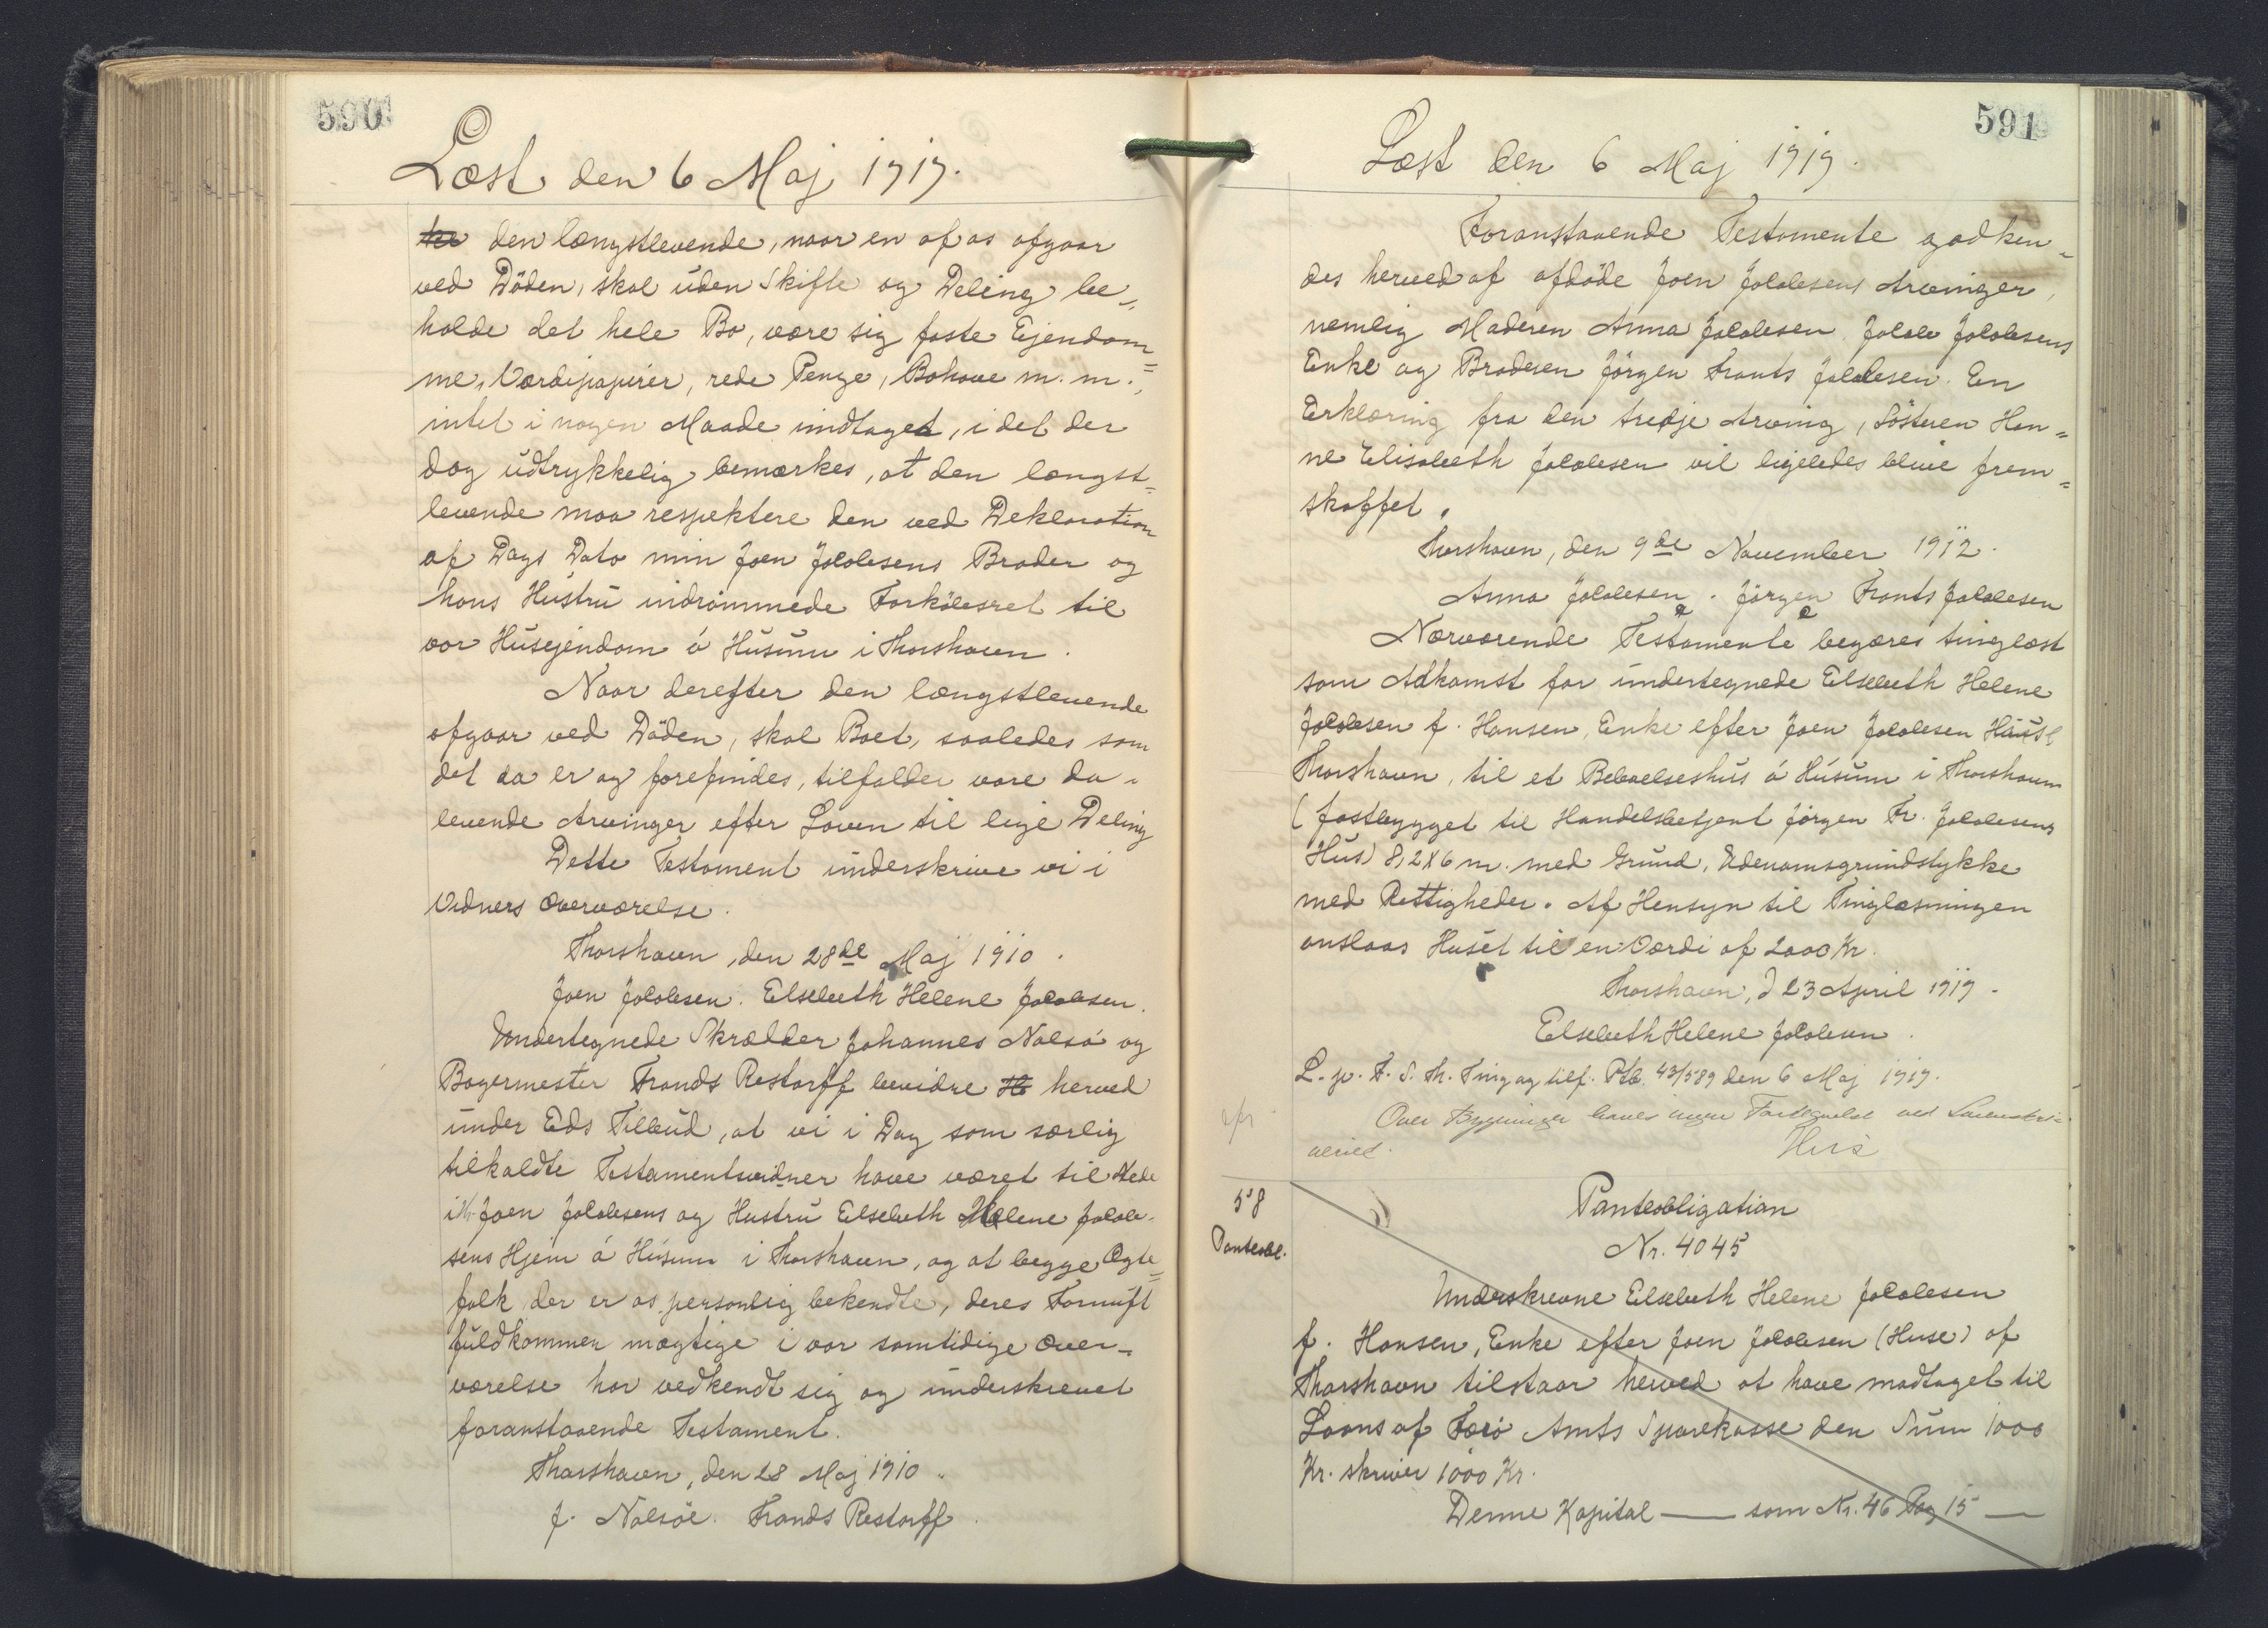 590
Læst den 6 Maj 1919.
den længstlevende, naar en af os afgaar
ved Döden, skal uden Skifte og Deling be-
holde det hele Bo, være sig faste Ejendom=
me, Værdipapirer, rede Penge, Bohave m. m.,
intet i nogen Maade undtaget, i det der
dog udtrykkelig bemærkes, at den længst=
levende maa respektere den ved Deklaration
af Dags Dato min Joen Jololesens Broder og
hans Hustru indrömmede Forköbsret til
vor Husejendom á Húsum i Thorshavn.
Naar derefter den længstlevende
afgaar ved Döden, skal Boet, saaledes som
det da er og forefindes, tilfalder vore da-
levende Arvinger efter Loven til lige Deling
Dette Testament underskrive vi i
Vidners Overværelse.
Thorshavn, den 28de Maj 1910.
Joen Jololesen. Elsebeth Helene Jololesen.
Undertegnede Skrædder Johannes Nolsö og
Bagermester Frands Restorff bevidne herved
under Eds Tilbud, at vi i Dag som særlig
tilkaldte Testamentsvidner have været til Stede
i Joen Jololesens og Hustru Elsebeth Helene Jolole-
sens Hjem á Húsum i Thorshavn, og at begge Ægte=
folk der er os personlig bekendte, deres Fornuft
fuldkommen mægtige i vor samtidige Over-
værelse har vedkendt sig og underskrevet
foranstaaende Testament.
Thorshavn, den 28 Maj 1910.
J. Nolsöe. Frands Restorff.
591
Læst den 6 Maj 1919.
Foranstaaende Testamente godken-
des herved af afdöde Joen Jololesens Arvinger,
nemlig Moderen Anna Jololesen Jolole Jololesens
Enke og Broderen Jörgen Frants Jololesen. En
Erklæring fra den tredje Arving, Sösteren Han=
ne Elisabeth Jololesen vil ligeledes blive frem=
skaffet.
Thorshavn, den 9de November 1912.
Anna Jololesen. Jörgen Frants Jololesen
Nærværende Testamente begæres tinglæst
som Adkomst for undertegnede Elsebeth Helene
Jololesen f. Hansen, Enke efter Joen Jololesen
Thorshavn, til et Beboelseshus á Húsum i Thorshavn
(fastbygget til Handelsbetjent Jörgen Fr. Jololesens
Hus) 8,2 x 6 m. med Grund, Udenomsgrundstykke
med Rettigheder. Af Hensyn til Tinglæsningen
anslaas Huset til en Værdi af 2000 Kr.
Thorshavn, d 23 April 1919.
Elsebeth Helene Jololesen.
L. p. F. S. Th. Ting og tilf. Ptb. 43/589 den 6 Maj 1919.
Over Bygninger haves ingen Fortegnelse ved Sorenskri=
veriet.
58
Panteobl.
Panteobligation
Nr. 4045
Underskrevne Elsebeth Helene Jololesen
f. Hansen, Enke efter Joen Jololesen (Huse) af
Thorshavn tilstaar herved at have modtaget til
Laans af Færö Amts Sparekasse den Sum 1000
Kr. skriver 1000 Kr.
Denne Kapital — som Nr. 46 Pag 15 —